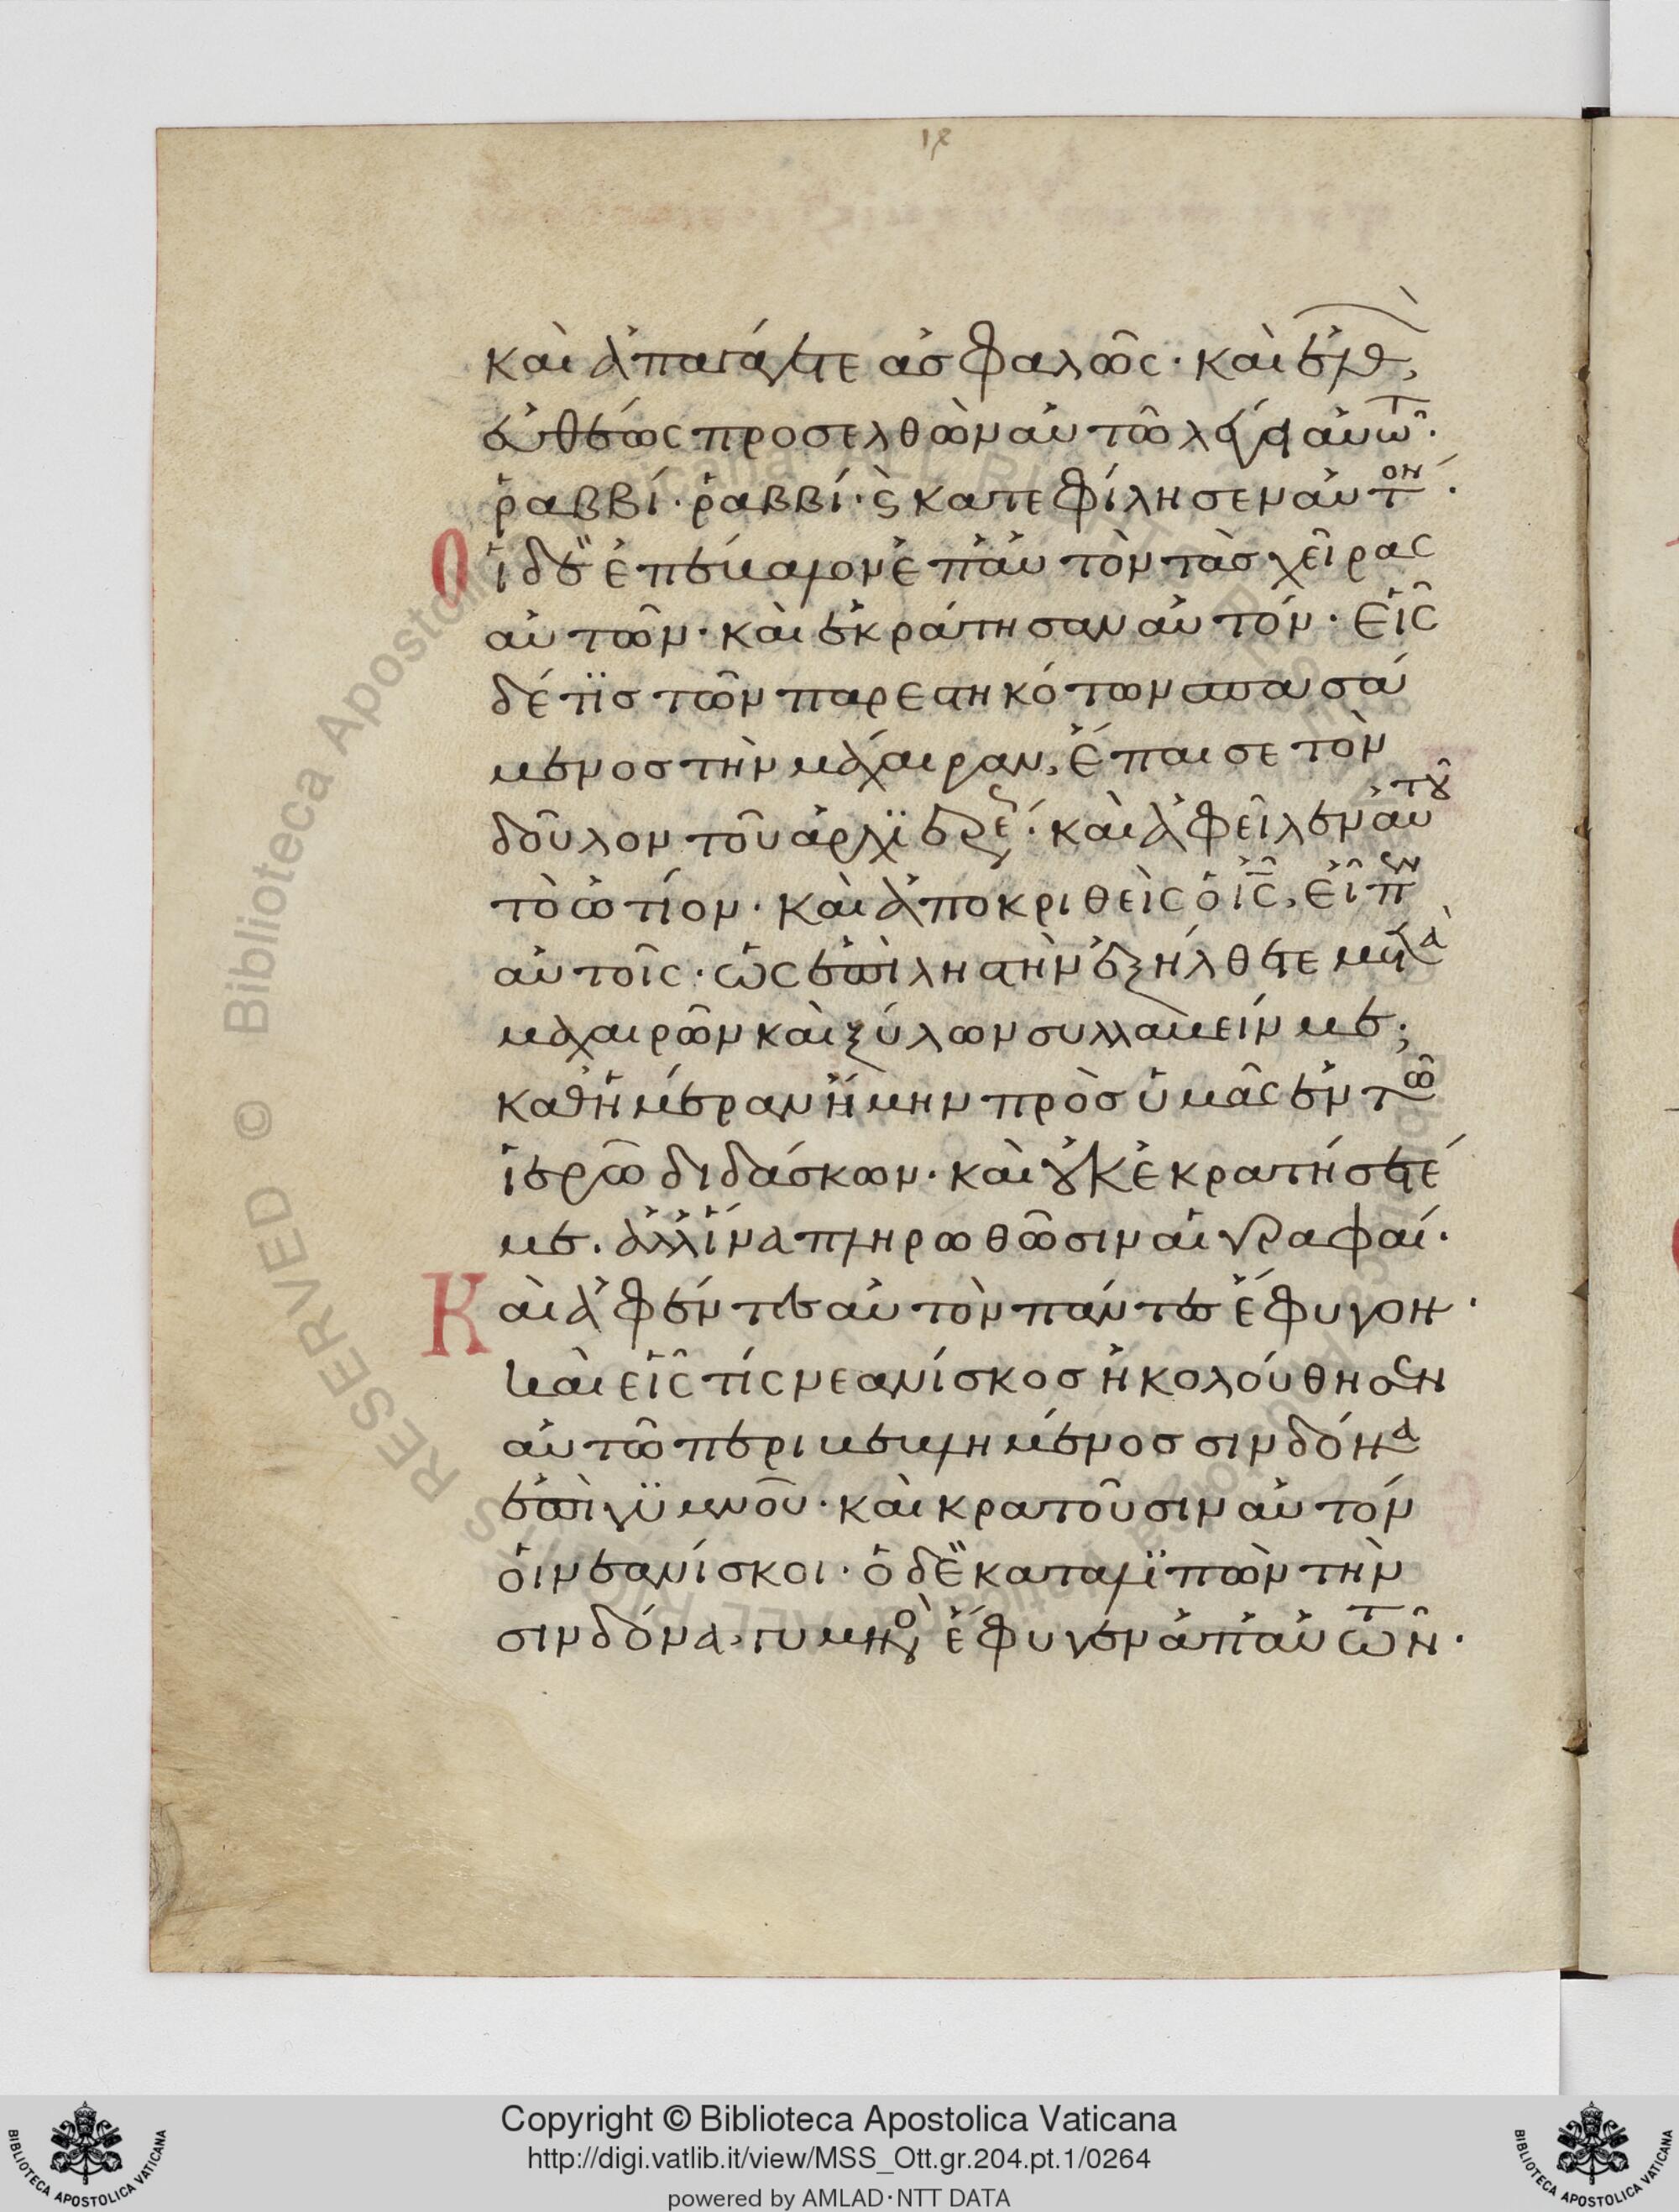 καὶ ἀπαγάγετε ἀσφαλῶς· καὶ ἐλθ,
εὐθέως προσελθὼν αὐτῶ λέγει αὐτῶ·
ῥαββί· ῥαββί· ϛ κατεφίλησεν αὐτόν·
Οἱ δὲ ἐπέβαλον ἐπ' αὐτὸν τὰς χεῖρας
αὐτῶν· καὶ ἐκράτησαν αὐτόν· εἷς
δέ τις τῶν παρεστηκότων σπασά
μενος τὴν μάχαιραν, ἔπαισε τὸν
δοῦλον τοῦ ἀρχϊερέ· καὶ ἀφεῖλεν αὐτοῦ
τὸ ὠτίον· καὶ ἀποκριθεὶς ὁ ις, εἶπεν
αὐτοῖς· ὡς ἐπὶ ληστὴν ἐξήλθετε μετὰ
μαχαιρῶν καὶ ξύλων συλλαβεῖν με;
καθ' ἡμέραν ἤμην πρὸς ὑμᾶς ἐν τῶ
ἱερῶ διδάσκων· καὶ οὐκ ἐκρατήσατέ
με. ἀλλ' ἵνα πληρωθῶσιν αἱ γραφαί·
Καὶ ἀφέντες αὐτὸν πάντες ἔφυγον·
καὶ εἷς τίς νεανίσκος ἠκολούθησεν
αὐτῶ περιβεβλημένος σινδόνα
ἐπὶ γϋμνοῦ· καὶ κρατοῦσιν αὐτόν
οἱ νεανίσκοι· ὁ δὲ καταλϊπὼν τὴν
σινδόνα, γυμνὸς ἔφυγεν ἀπ' αὐτῶν·
Copyright © Biblioteca Apostolica Vaticana
http://digi.vatlib.it/view/MSS_Ott.gr.204.pt.1/0264
powered by AMLAD·NTT DATA
BIBLIOTECA APOSTOLICA VATICANA
BIBLIOTECA APOSTOLICA VATICANA